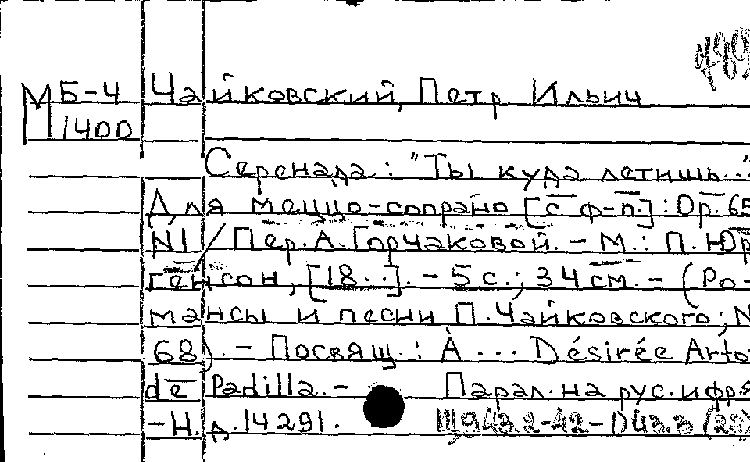 МБ-4 Чайковский, Петр Ильич
1400
Серенада: "Ты куда летишь..."
Для меццо-сопрано [с ф-п.]: Op. 65
N1 / Пер. А. Горчаковой. - М.: П. Юр-
генсон, [18..]. - 5 с.; 34 см. - (Ро-
мансы и песни П. Чайковского; N
68). - Посвящ.: À ... Désirée Arto
de Padilla. - Парал. на рус. и фра
-Н. д. 14291. Щ943.2-42-043.3 (23)